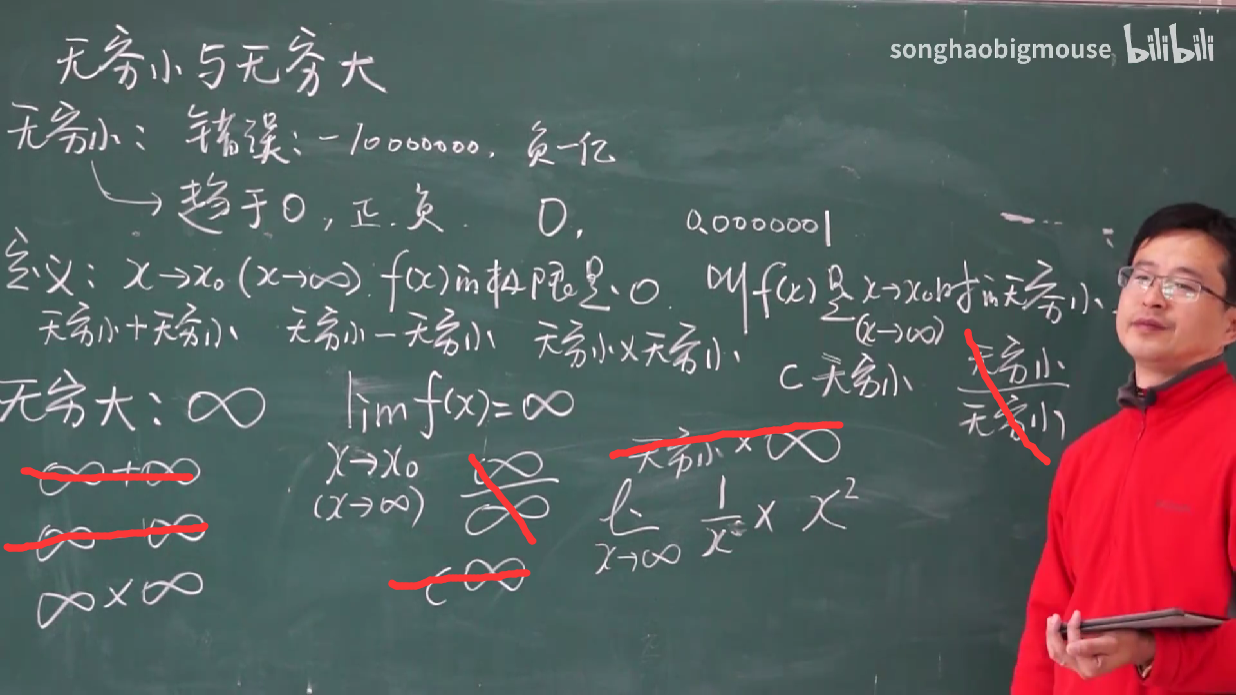 songhaobigmouse bilibili
无穷小与无穷大
无穷小: 错误: -10000000. 负一亿
趋于0, 正.负. 0. 0.0000001
定义: x→x₀ (x→∞) f(x)的极限是0. 叫f(x)是x→x₀时的无穷小.
(x→∞)
无穷小+无穷小 无穷小-无穷小 无穷小×无穷小
C 无穷小 无穷小/无穷小
无穷大: ∞ lim f(x)=∞
x→x₀
(x→∞)
∞+∞ ∞/∞ 无穷小×∞
∞-∞ lim 1/x² × x²
x→∞
∞×∞ C∞